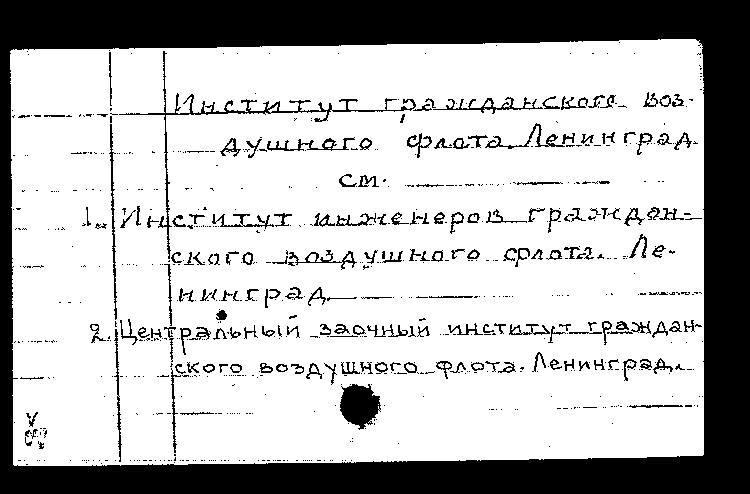 Институт гражданского воз-
душного флота. Ленинград
см.
1. Институт инженеров граждан-
ского воздушного флота. Ле-
нинград
2. Центральный заочный институт граждан-
ского воздушного флота. Ленинград.